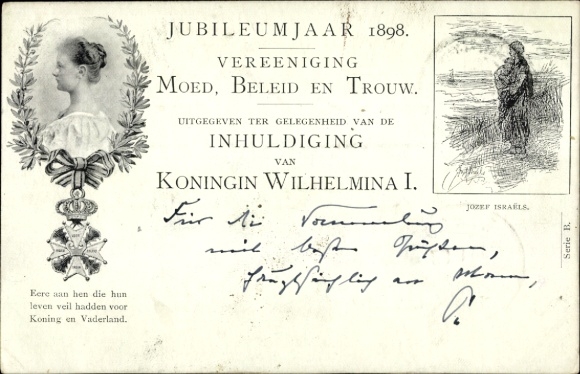 JUBILEUMJAAR 1898.
VEREENIGING
MOED, BELEID EN TROUW.
UITGEGEVEN TER GELEGENHEID VAN DE
INHULDIGING
VAN
KONINGIN WILHELMINA I.
JOZEF ISRAËLS.
Serie B.
Eere aan hen die hun
leven veil hadden voor
Koning en Vaderland.
Für die
mit besten Grüßen,
hauptsächlich